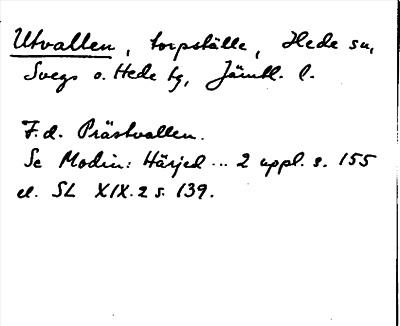 Utvallen, torpställe, Hede sn,
Svegs o. Hede tg, Jämtl. l.
F.d. Prästvallen.
Se Modin: Härjed... 2 uppl. s. 155
el. SL XIX.2 s. 139.